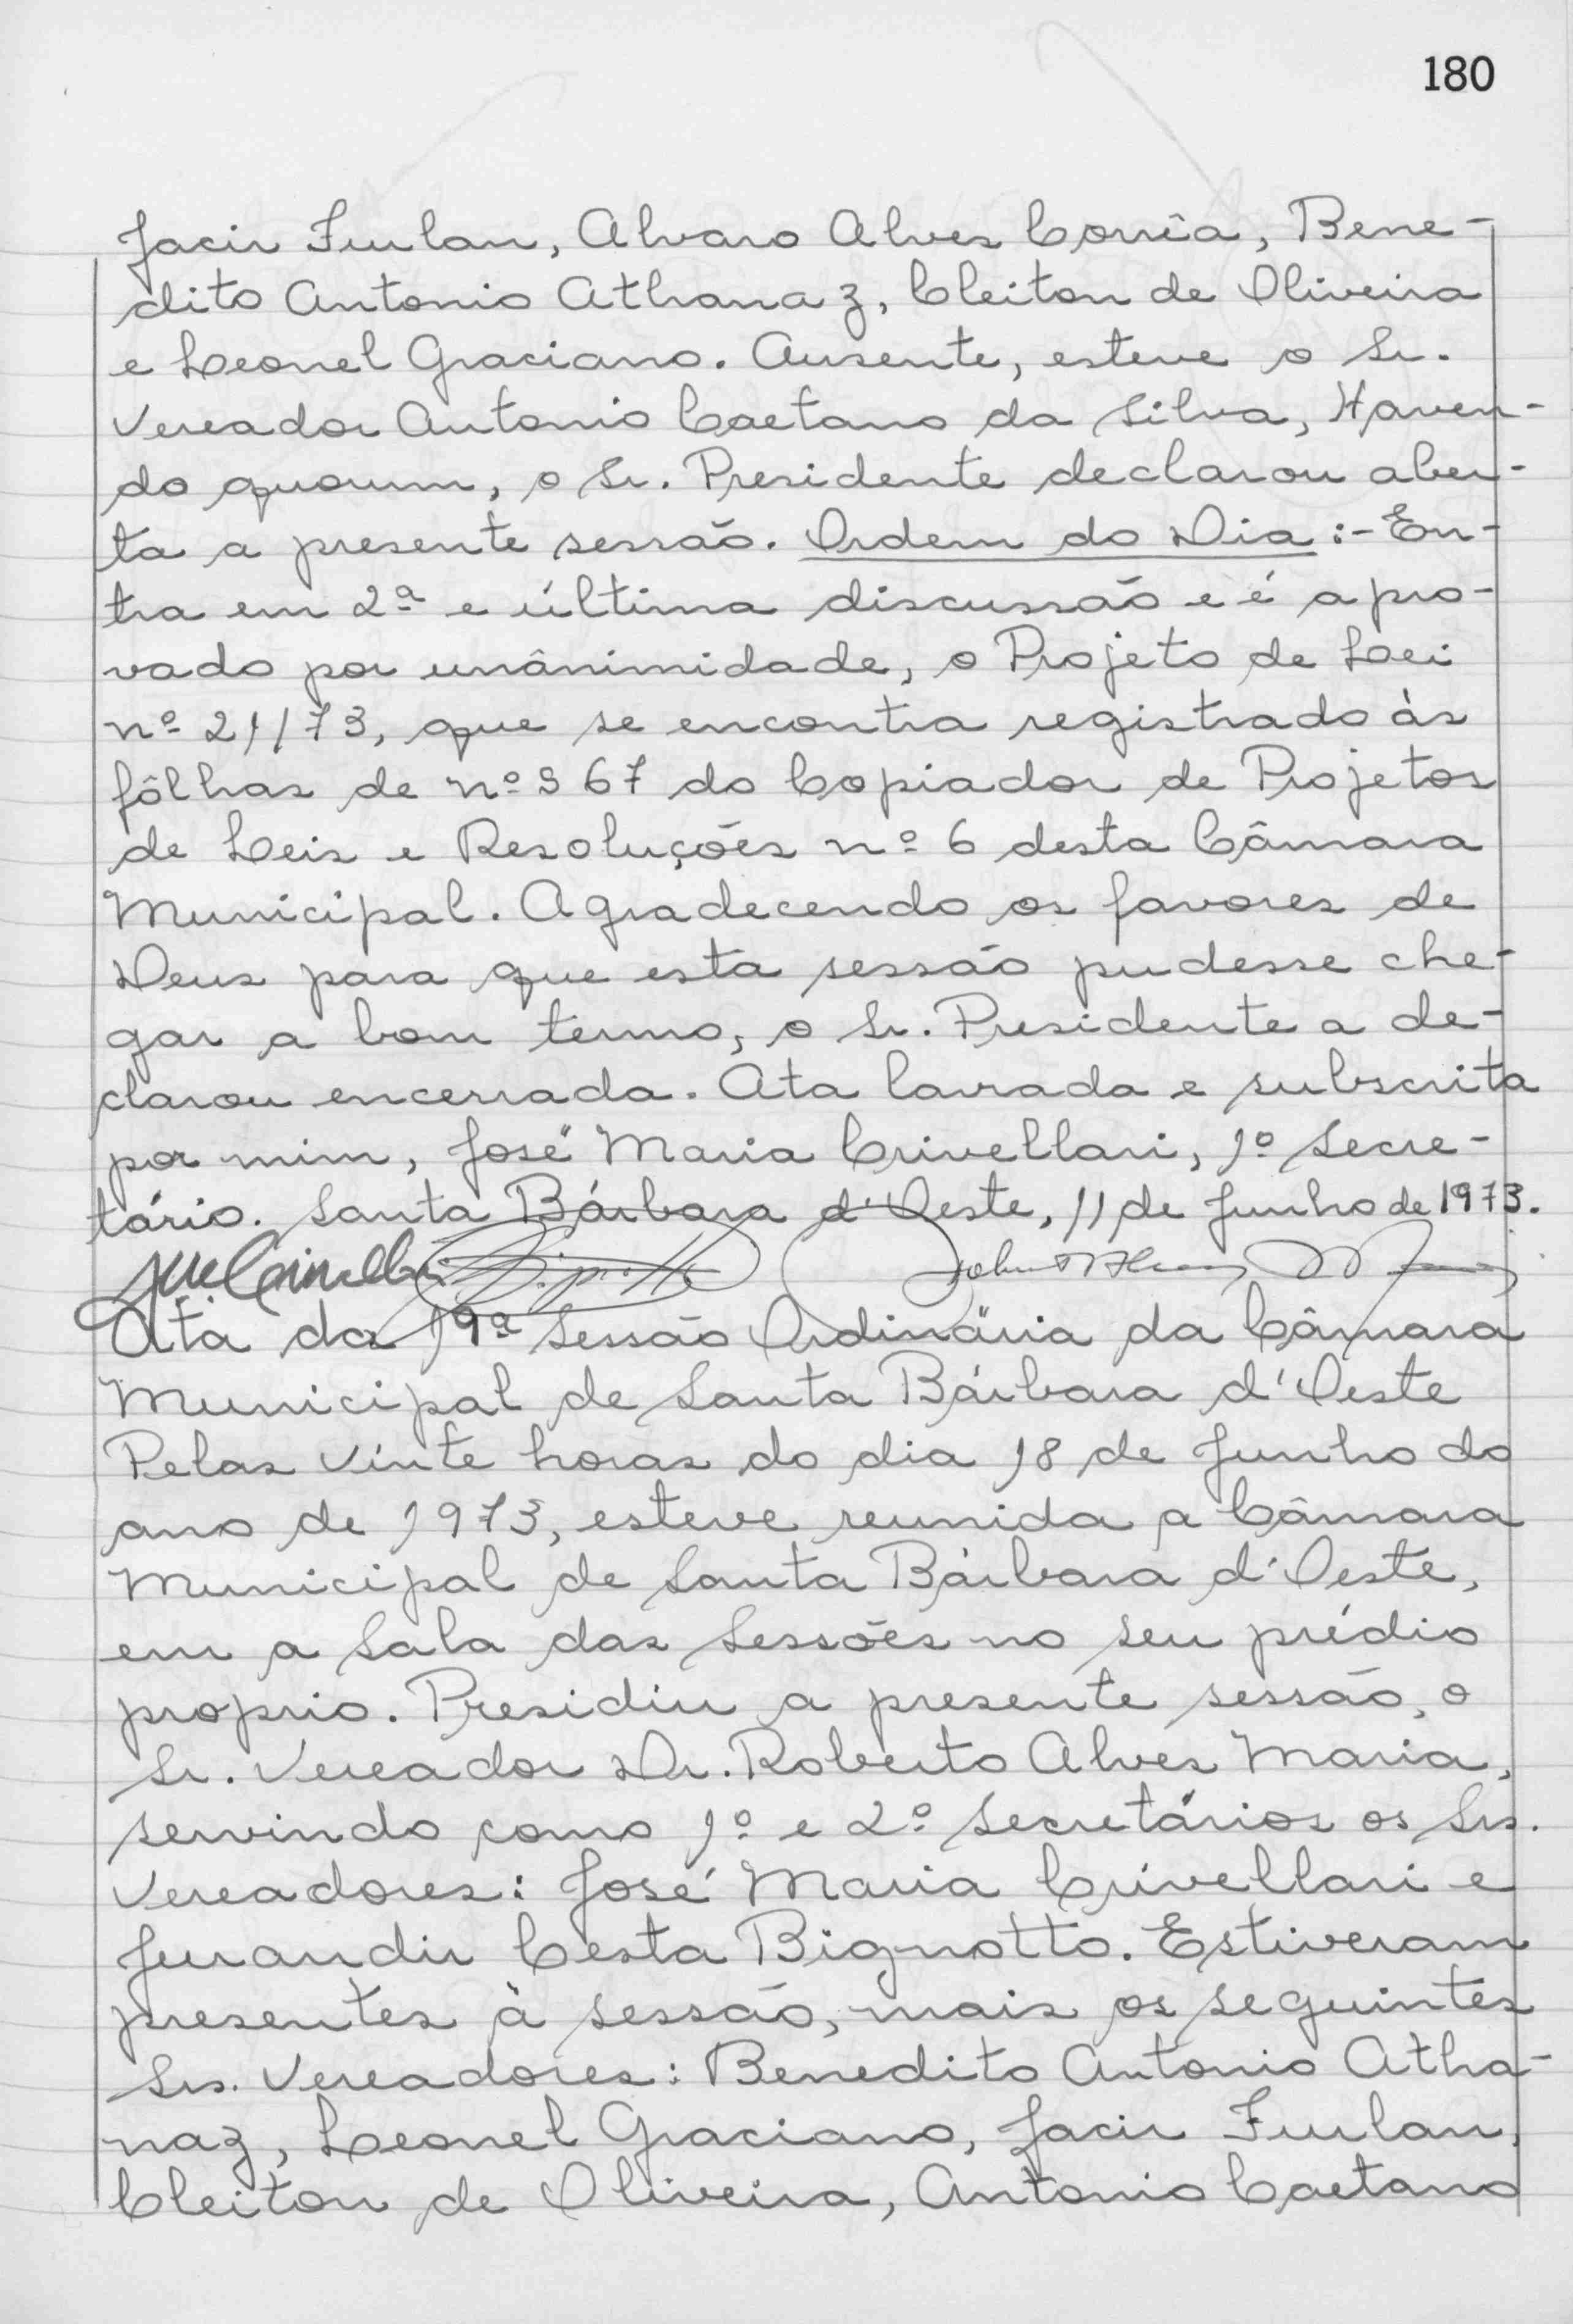 180
Jacir Furlan, Alvaro Alves Corrêa, Bene-
dito Antonio Athanaz, Cleiton de Oliveira
e Leonel Graciano. Ausente, esteve o Sr.
Vereador Antonio Caetano da Silva, Haven-
do quorum, o Sr. Presidente declarou aber-
ta a presente sessão. Ordem do Dia :- En-
tra em 2ª e última discussão e é apro-
vado por unânimidade, o Projeto de Lei
nº 21/73, que se encontra registrado às
fôlhas de nºs 67 do Copiador de Projetos
de Leis e Resoluções nº 6 desta Câmara
Municipal. Agradecendo os favores de
Deus para que esta sessão pudesse che-
gar a bom termo, o Sr. Presidente a de-
clarou encerrada. Ata lavrada e subscrita
por mim, José Maria Crivellari, 1º Secre-
tário. Santa Bárbara d'Oeste, 11 de Junho de 1973.
Ata da 19ª Sessão Ordinária da Câmara
Municipal de Santa Bárbara d'Oeste
Pelas vinte horas do dia 18 de Junho do
ano de 1973, esteve reunida a Câmara
Municipal de Santa Bárbara d'Oeste,
em a Sala das Sessões no seu prédio
proprio. Presidiu a presente sessão, o
Sr. Vereador Dr. Roberto Alves Maria,
servindo como 1º e 2º Secretários os Srs.
Vereadores: José Maria Crivellari e
Jurandir Cesta Bignotto. Estiveram
presentes à sessão, mais os seguintes
Srs. Vereadores: Benedito Antonio Atha-
naz, Leonel Graciano, Jacir Furlan,
Cleiton de Oliveira, Antonio Caetano